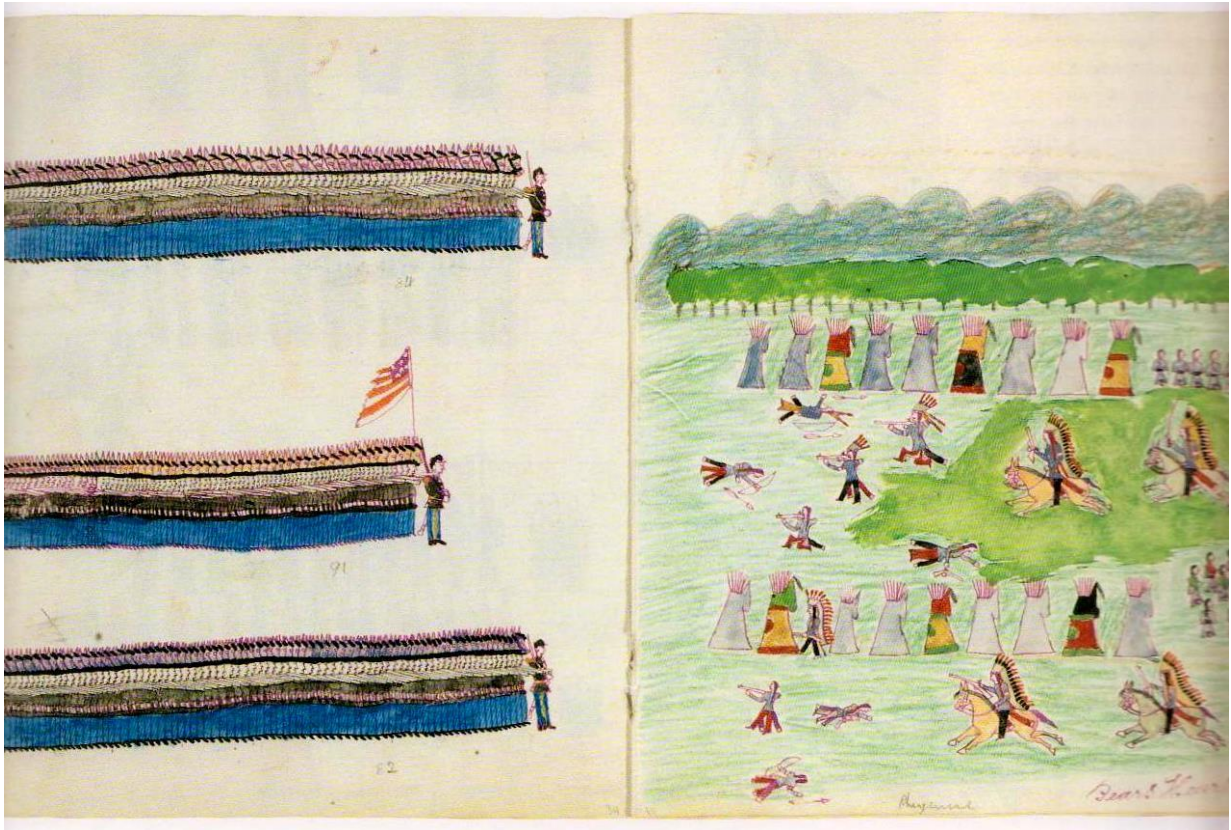 84
91
82
Cheyenne
Bear's Hear